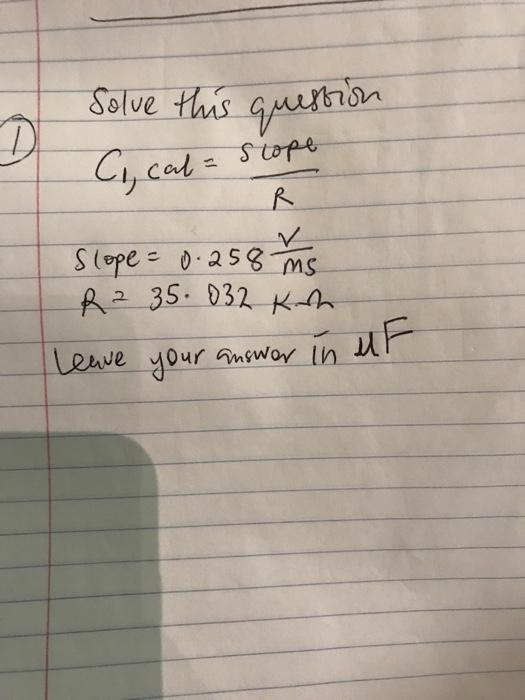 Solve this question
1
C1, cal = slope
R
slope = 0.258 V
ms
R = 35.032 KΩ
Leave your answer in uF